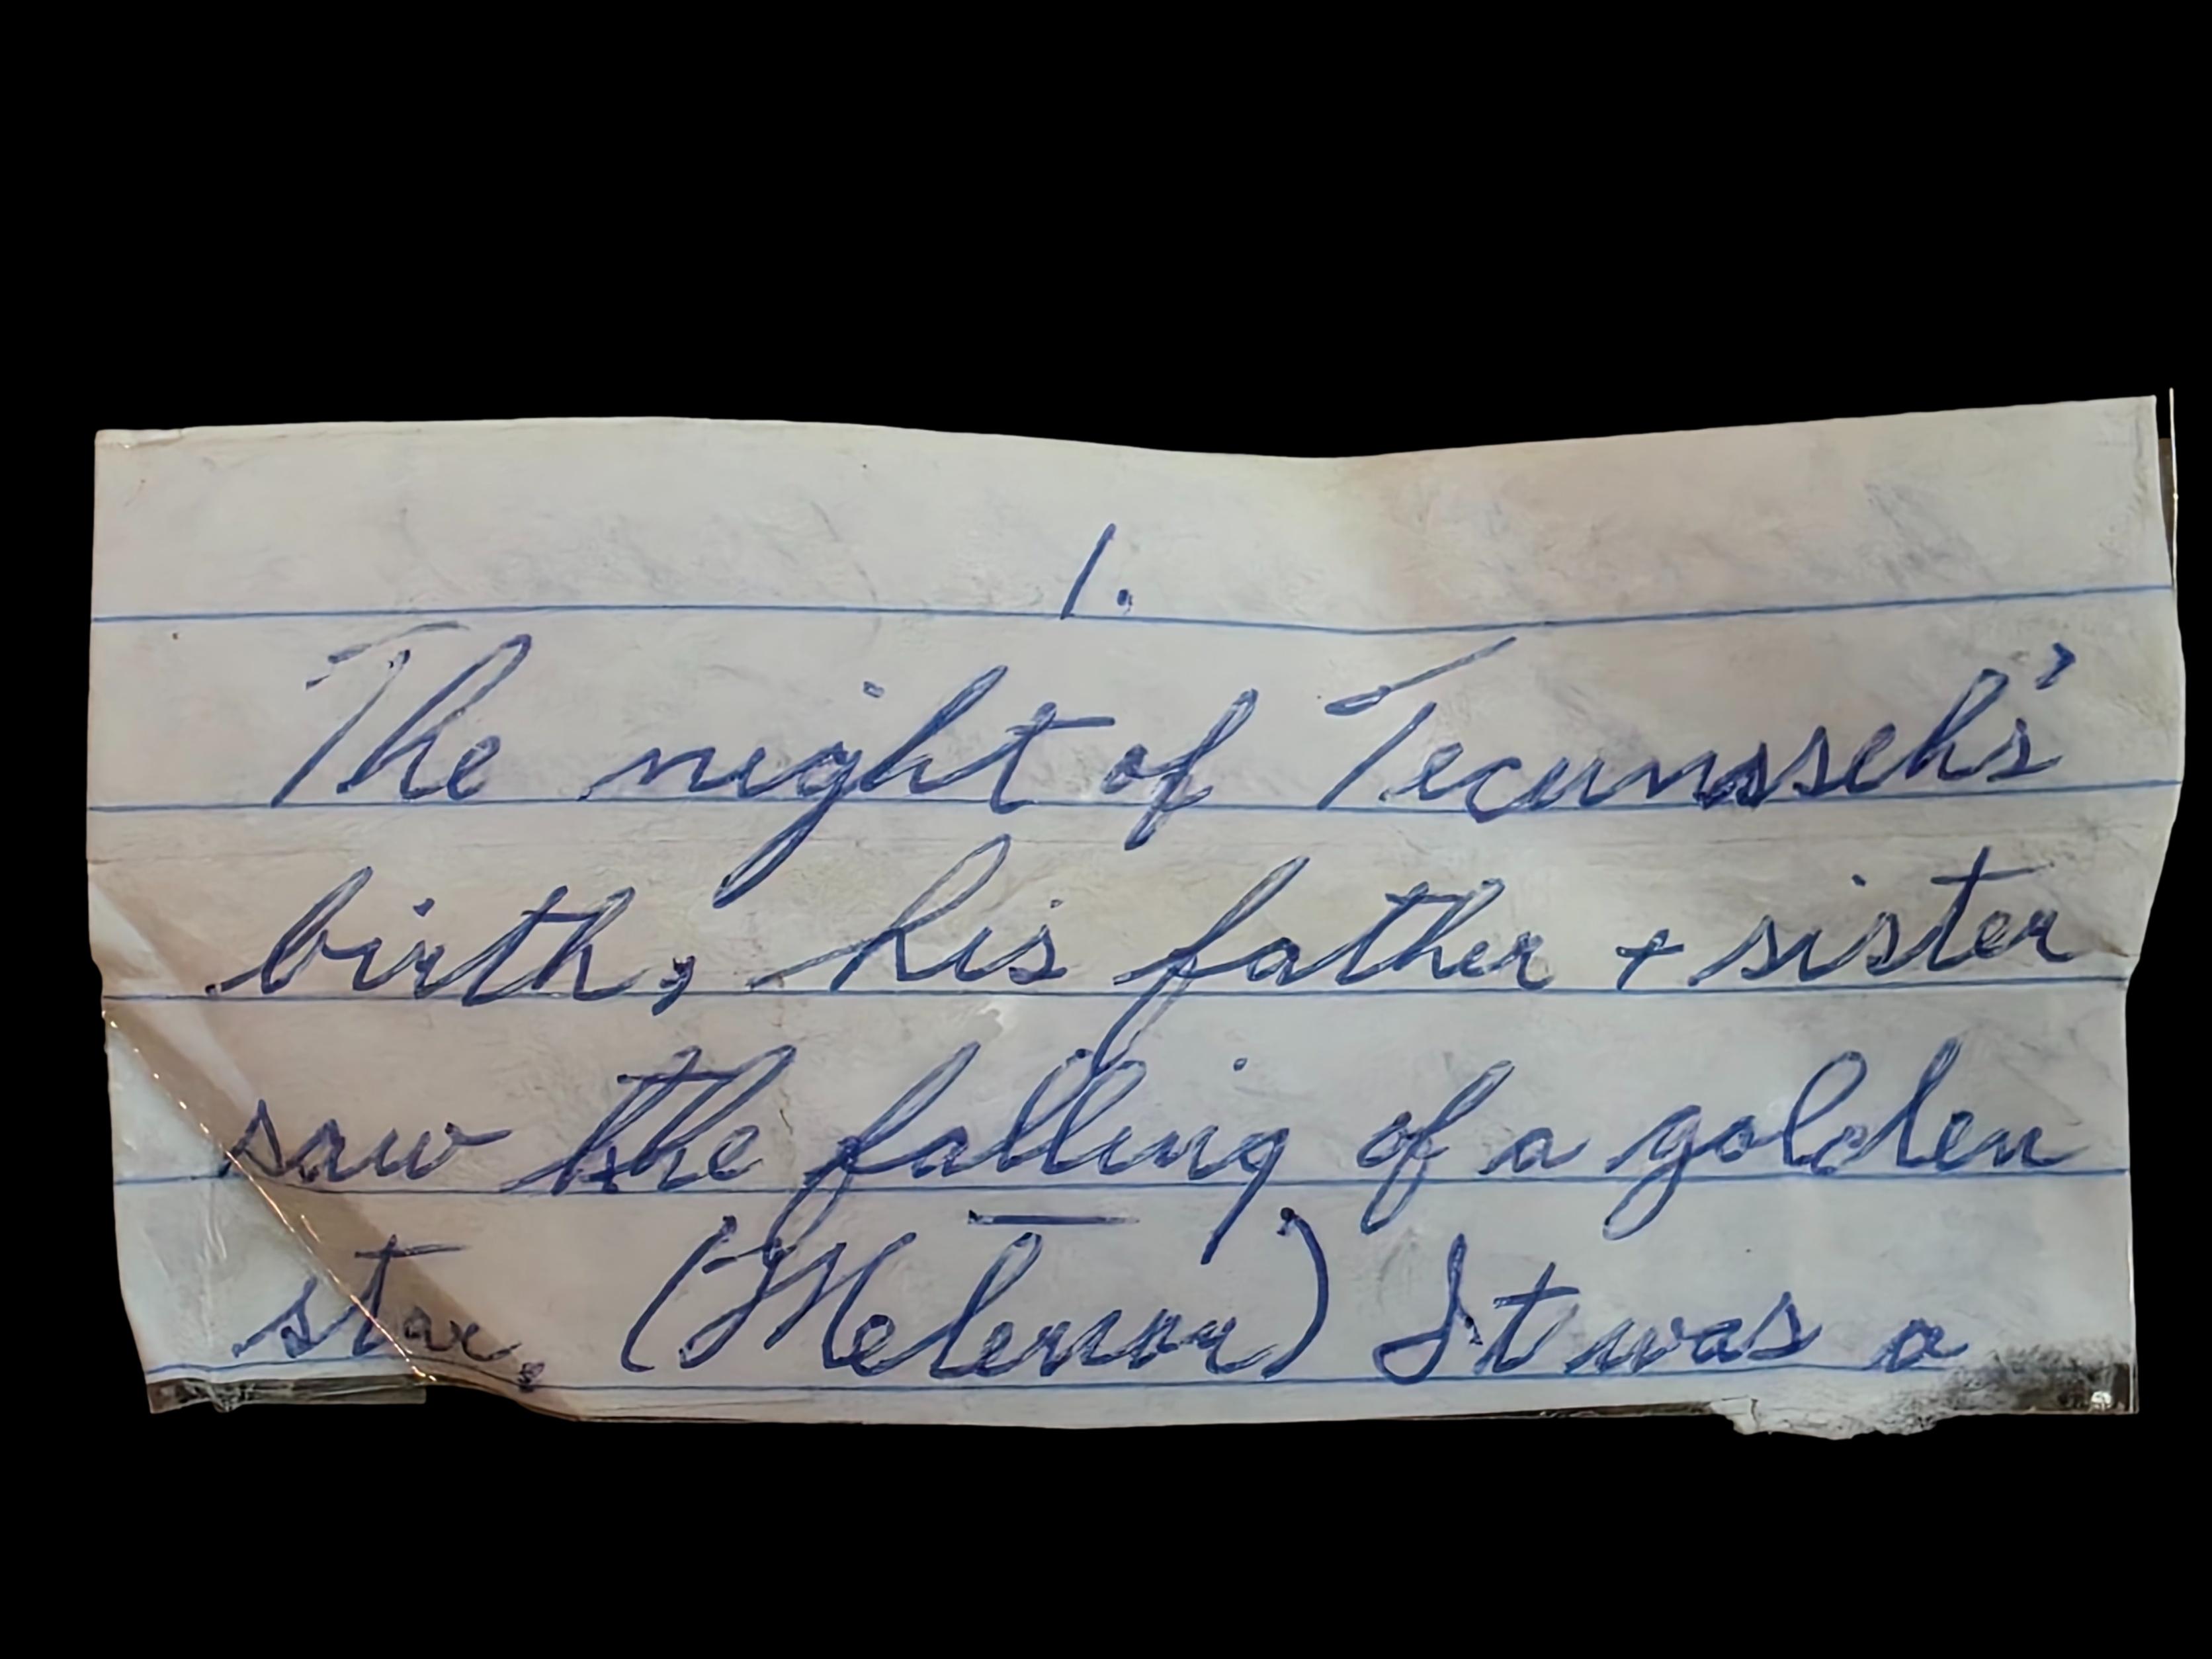 1.
The night of Tecumsseh's
birth, his father + sister
saw the falling of a golden
star, (Meterour) It was a